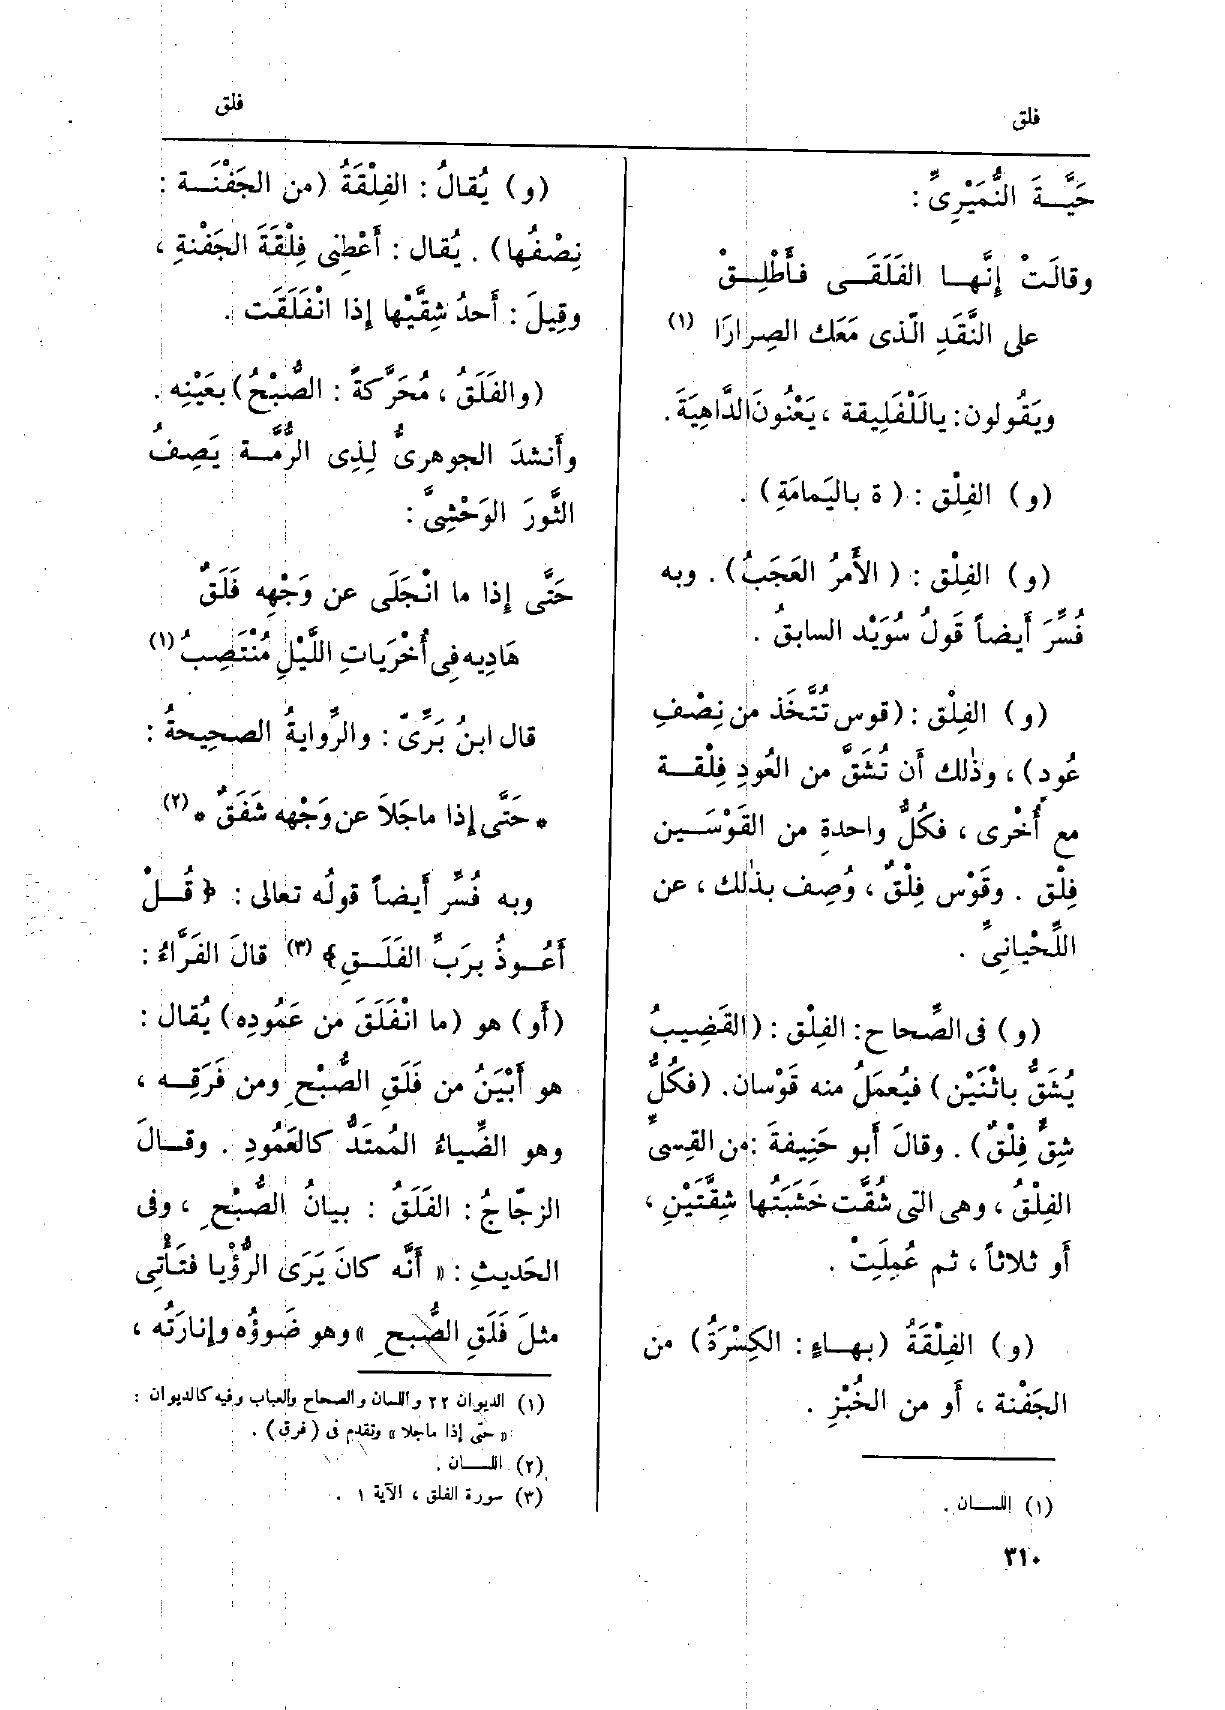 فلق
فلق
حَيَّـةَ النُّمَيْرِىِّ :
وقالَتْ إِنَّهـا الفَلَقَـى فـأَطْلِـقْ
على النَّقَدِ الَّذى مَعَك الصِرارَا (١)
ويَقُولون: ياللَفْلِيقة ، يَعْنُونَ الدَّاهِيَةَ .
(و) الفِلْق : ( ة باليَمامَةِ ) .
(و) الفِلْق : ( الأَمرُ العَجَبُ ) . وبه
فُسِّرَ أَيضاً قَولُ سُوَيْد السابقُ .
(و) الفِلْق : (قوس تُتَّخَذ من نِصْفِ
عُودٍ) ، وذٰلك أَن تُشَقَّ من العُودِ فِلْقـة
مع أُخْرى ، فكُلُّ واحدةٍ من القَوْسَـين
فِلْق . وقَوْس فِلْقٌ ، وُصِف بذٰلك ، عن
اللِّحْيانِىِّ .
(و) فى الصِّحاح: الفِلْق : (القَضِيبُ
يُشَقُّ باثْنَيْن) فيُعمَلُ منه قَوْسان. (فكُلُّ
شِقٍّ فِلْقٌ) . وقالَ أَبو حَنِيفةَ :من القِسِىِّ
الفِلْقُ ، وهى التى شُقَّت خَشَبَتُها شِقَّتَيْنِ ،
أَو ثلاثاً ، ثم عُمِلَتْ .
(و) الفِلْقَةُ (بهـاءٍ : الكِسْرَةُ) من
الجَفْنة ، أَو من الخُبْزِ .
(١) اللسـان .
٣١٠
(و) يُقالُ : الفِلْقَةُ (من الجَفْنَـة :
نِصْفُها) . يُقال : أَعْطِنى فِلْقَةَ الجَفْنةِ ،
وقِيلَ : أَحدُ شِقَّيْها إذا انْفَلَقَت .
(والفَلَقُ ، مُحَرَّكةً : الصُّبْحُ) بعَيْنِه .
وأَنشدَ الجوهرىُّ لِذِى الرُّمَّـة يَصِفُ
الثَّورَ الوَحْشِىَّ :
حَتَّى إِذا ما انْجَلَى عن وَجْهِه فَلَقٌ
هَادِيه فِى أُخْرَياتِ اللَّيْلِ مُنْتَصِبُ (١)
قال ابنُ بَرِّىّ : والرِّوايةُ الصحِيحةُ :
* حَتَّى إِذا ماجَلاَ عن وَجْهِه شَفَقٌ * (٢)
وبه فُسِّر أَيضاً قولُه تعالى : ﴿ قُـلْ
أَعُـوذُ بِرَبِّ الفَلَـقِ﴾ (٣) قالَ الفَرَّاءُ :
(أَو) هو (ما انْفَلَقَ من عَمُودِه) يُقال :
هو أَبْيَنُ من فَلَقِ الصُّبْحِ ومن فَرَقِـه ،
وهو الضِّياءُ المُمتَدُّ كالعَمُودِ . وقـالَ
الزجّاجُ : الفَلَقُ : بيانُ الصُّبْحِ ، وفى
الحَديثِ : « أَنَّه كانَ يَرَى الرُّؤْيا فتَـأْتِى
مثلَ فَلَقِ الصُّبحِ » وهو ضَوؤُه وإِنارَتُه ،
(١) الديوان ٢٢ واللسان والصحاح والعباب وفيه كالديوان :
« حتى إذا ماجلا » وتقدم فى (فرق) .
(٢) اللـسان .
(٣) سورة الفلق ، الآية ١ .